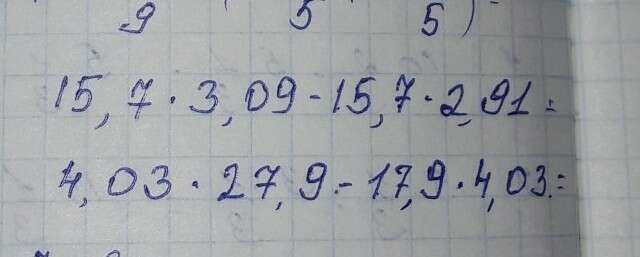 9 5 5)
15,7 · 3,09 - 15,7 · 2,91 =
4,03 · 27,9 - 17,9 · 4,03 =